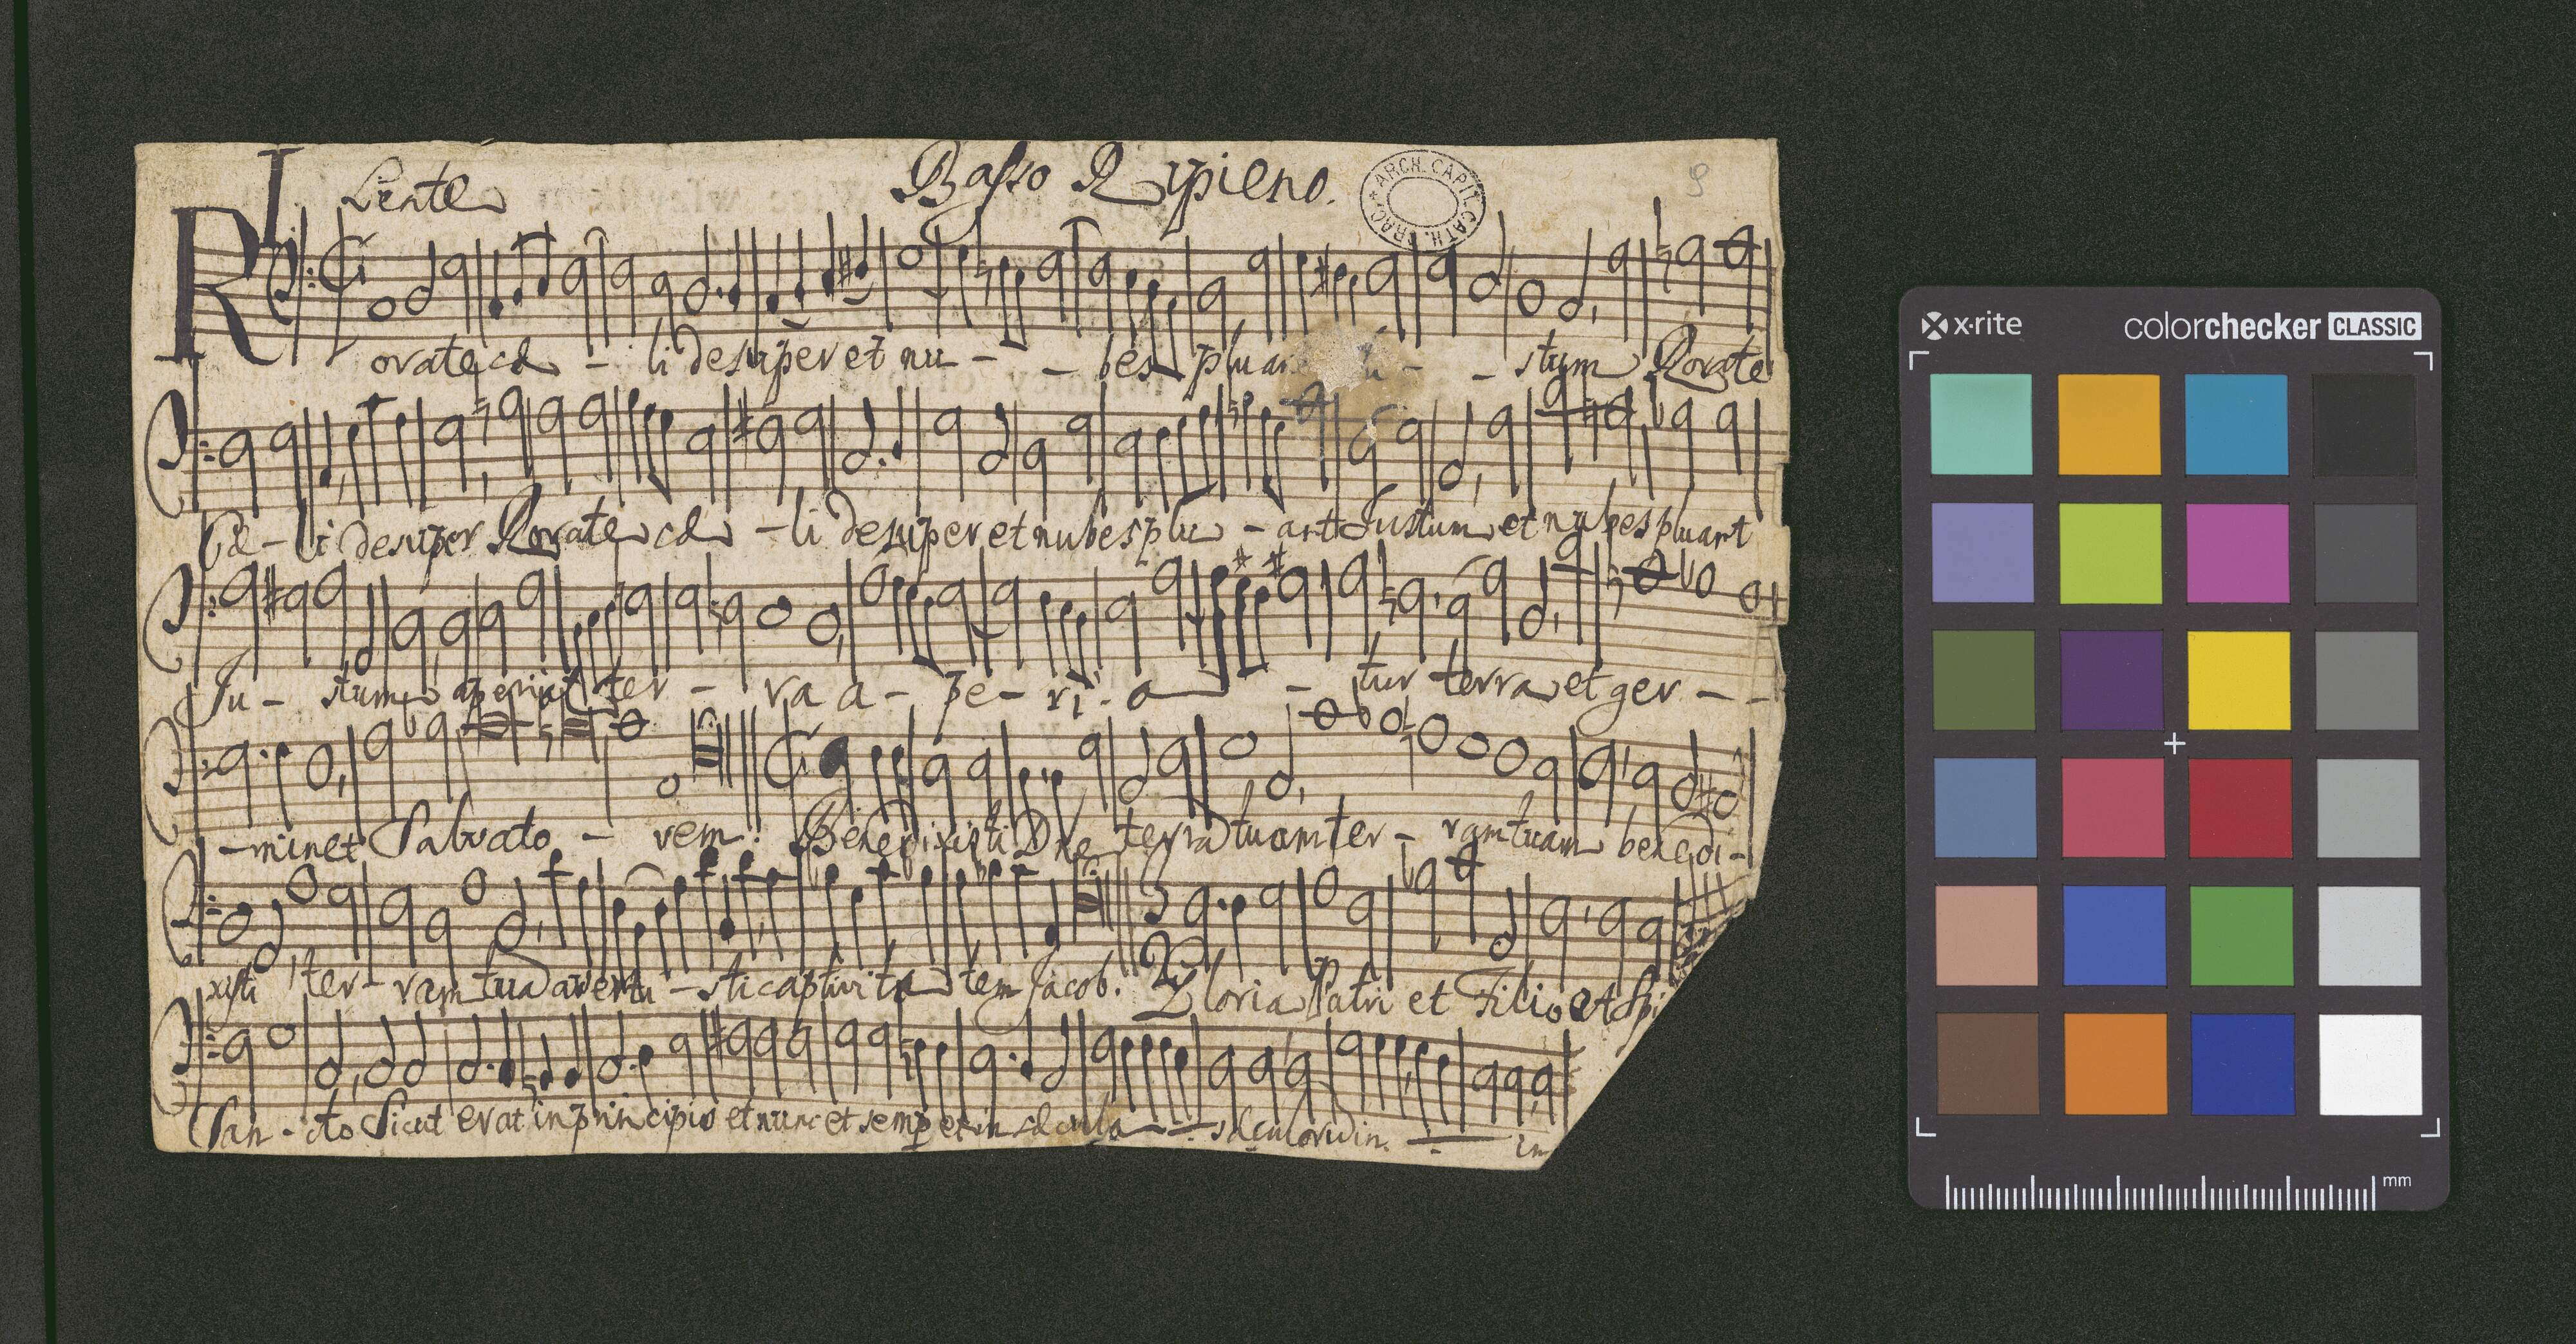 Lente
Basso Ripieno.
ARCH. CAPIT. CATH. CRAC.
9
Rorate cæ - li desuper et nu - - bes pluant - - stum Rorate
Cæ - li desuper Rorate cæ - li desuper et nubes plu - ant Justum et nubes pluant
Ju - stum aperiat ter - ra a - pe - ri - a - tur terra et ger - -
- minet Salvato - rem. Benedixisti Dne terrã tuam ter - ram tuam benedi -
xisti ter - ram tuã averti - sti captivita tem Jacob. Gloria Patri et Filio et Spi
San - cto Sicut erat in principio et nunc et semp et in sæcula - sæculorũ in in
x·rite
colorchecker CLASSIC
mm